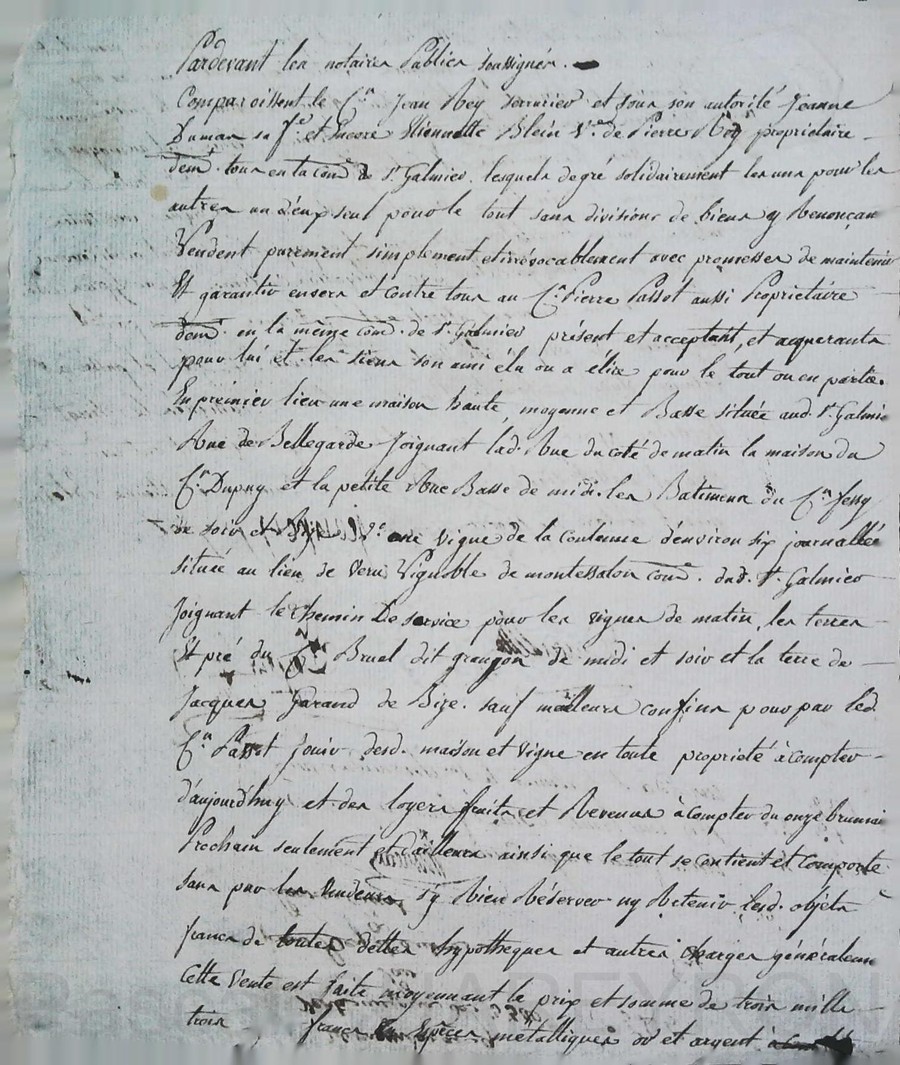 Pardevant les notaires Publics soussignés.
Comparoissent le C.en Jean Rey serrurier et sous son autorité Jeanne
Dumas sa f.e et Encore Etiennette Blein V.e de Pierre Rey propriétaire
dem.t tous en la com.e de S.t Galmier. lesquels de gré solidairement les uns pour les
autres un d'eux seul pour le tout sans divisions de biens y Renonçan
Vendent purement simplement et irrévocablement avec promesses de maintenir
Et garantir envers et contre tous au C.en Pierre Passot aussi Propriétaire
dem.t en la même com.e de S.t Galmier présent et acceptant, et acquerants
pour lui et les siens son ami élu ou a élire pour le tout ou en partie.
En prémier lieu une maison haute, moyenne et Basse située aud. S.t Galmie
Rue de Bellegarde Joignant lad. Rue du coté de matin la maison du
C.en Dupuy et la petite Rue Basse de midi. les Batimens du C.en
de soir et 2.o une vigne de la contenue d'environ six journallée
située au lieu de Vignoble de montessalon com.e dud. S.t Galmier
Joignant le Chemin De service pour les vignes de matin, les terres
Et pré du C.en Bruel dit grangon de midi et soir et la terre de
Jacques Garand de Bize. sauf meilleurs confins pour par led.
C.en Passot jouir desd. maison et vigne en toute propriété à compter
d'aujourd'huy et des loyers fruits et Revenus à compter du onze brumai
Prochain seulement et d'ailleurs ainsi que le tout se contient et comporte
sans par les Vendeurs s'y Rien Réserver ny Retenir lesd. objets
francs de toutes dettes hypotheques et autres charges généralemen
Cette Vente est faite moyennant le prix et somme de trois mille
trois francs Espèces métalliques or et argent